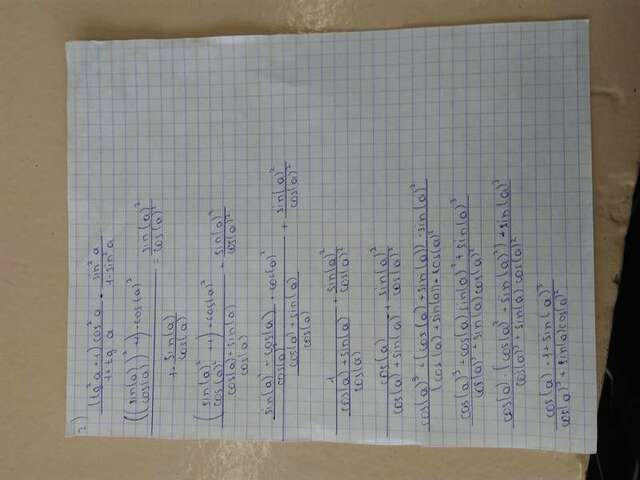 2)
((tg²a+1)cos²a)/(1+tg a) + sin²a/(1-sin²a)
(((sin(a)/cos(a))²+1)·cos(a)²)/(1+sin(a)/cos(a)) + sin(a)²/cos(a)² =
((sin(a)²/cos(a)²+1)·cos(a)²)/((cos(a)+sin(a))/cos(a)) + sin(a)²/cos(a)²
((sin(a)²+cos(a)²)/cos(a)² · cos(a)²)/((cos(a)+sin(a))/cos(a)) + sin(a)²/cos(a)²
1/((cos(a)+sin(a))/cos(a)) + sin(a)²/cos(a)²
cos(a)/(cos(a)+sin(a)) + sin(a)²/cos(a)²
(cos(a)³+(cos(a)+sin(a))·sin(a)²)/((cos(a)+sin(a))·cos(a)²)
(cos(a)³+cos(a)sin(a)²+sin(a)³)/(cos(a)³+sin(a)cos(a)²)
(cos(a)·(cos(a)²+sin(a)²)+sin(a)³)/(cos(a)³+sin(a)·cos(a)²)
(cos(a)·1+sin(a)³)/(cos(a)³+sin(a)cos(a)²)